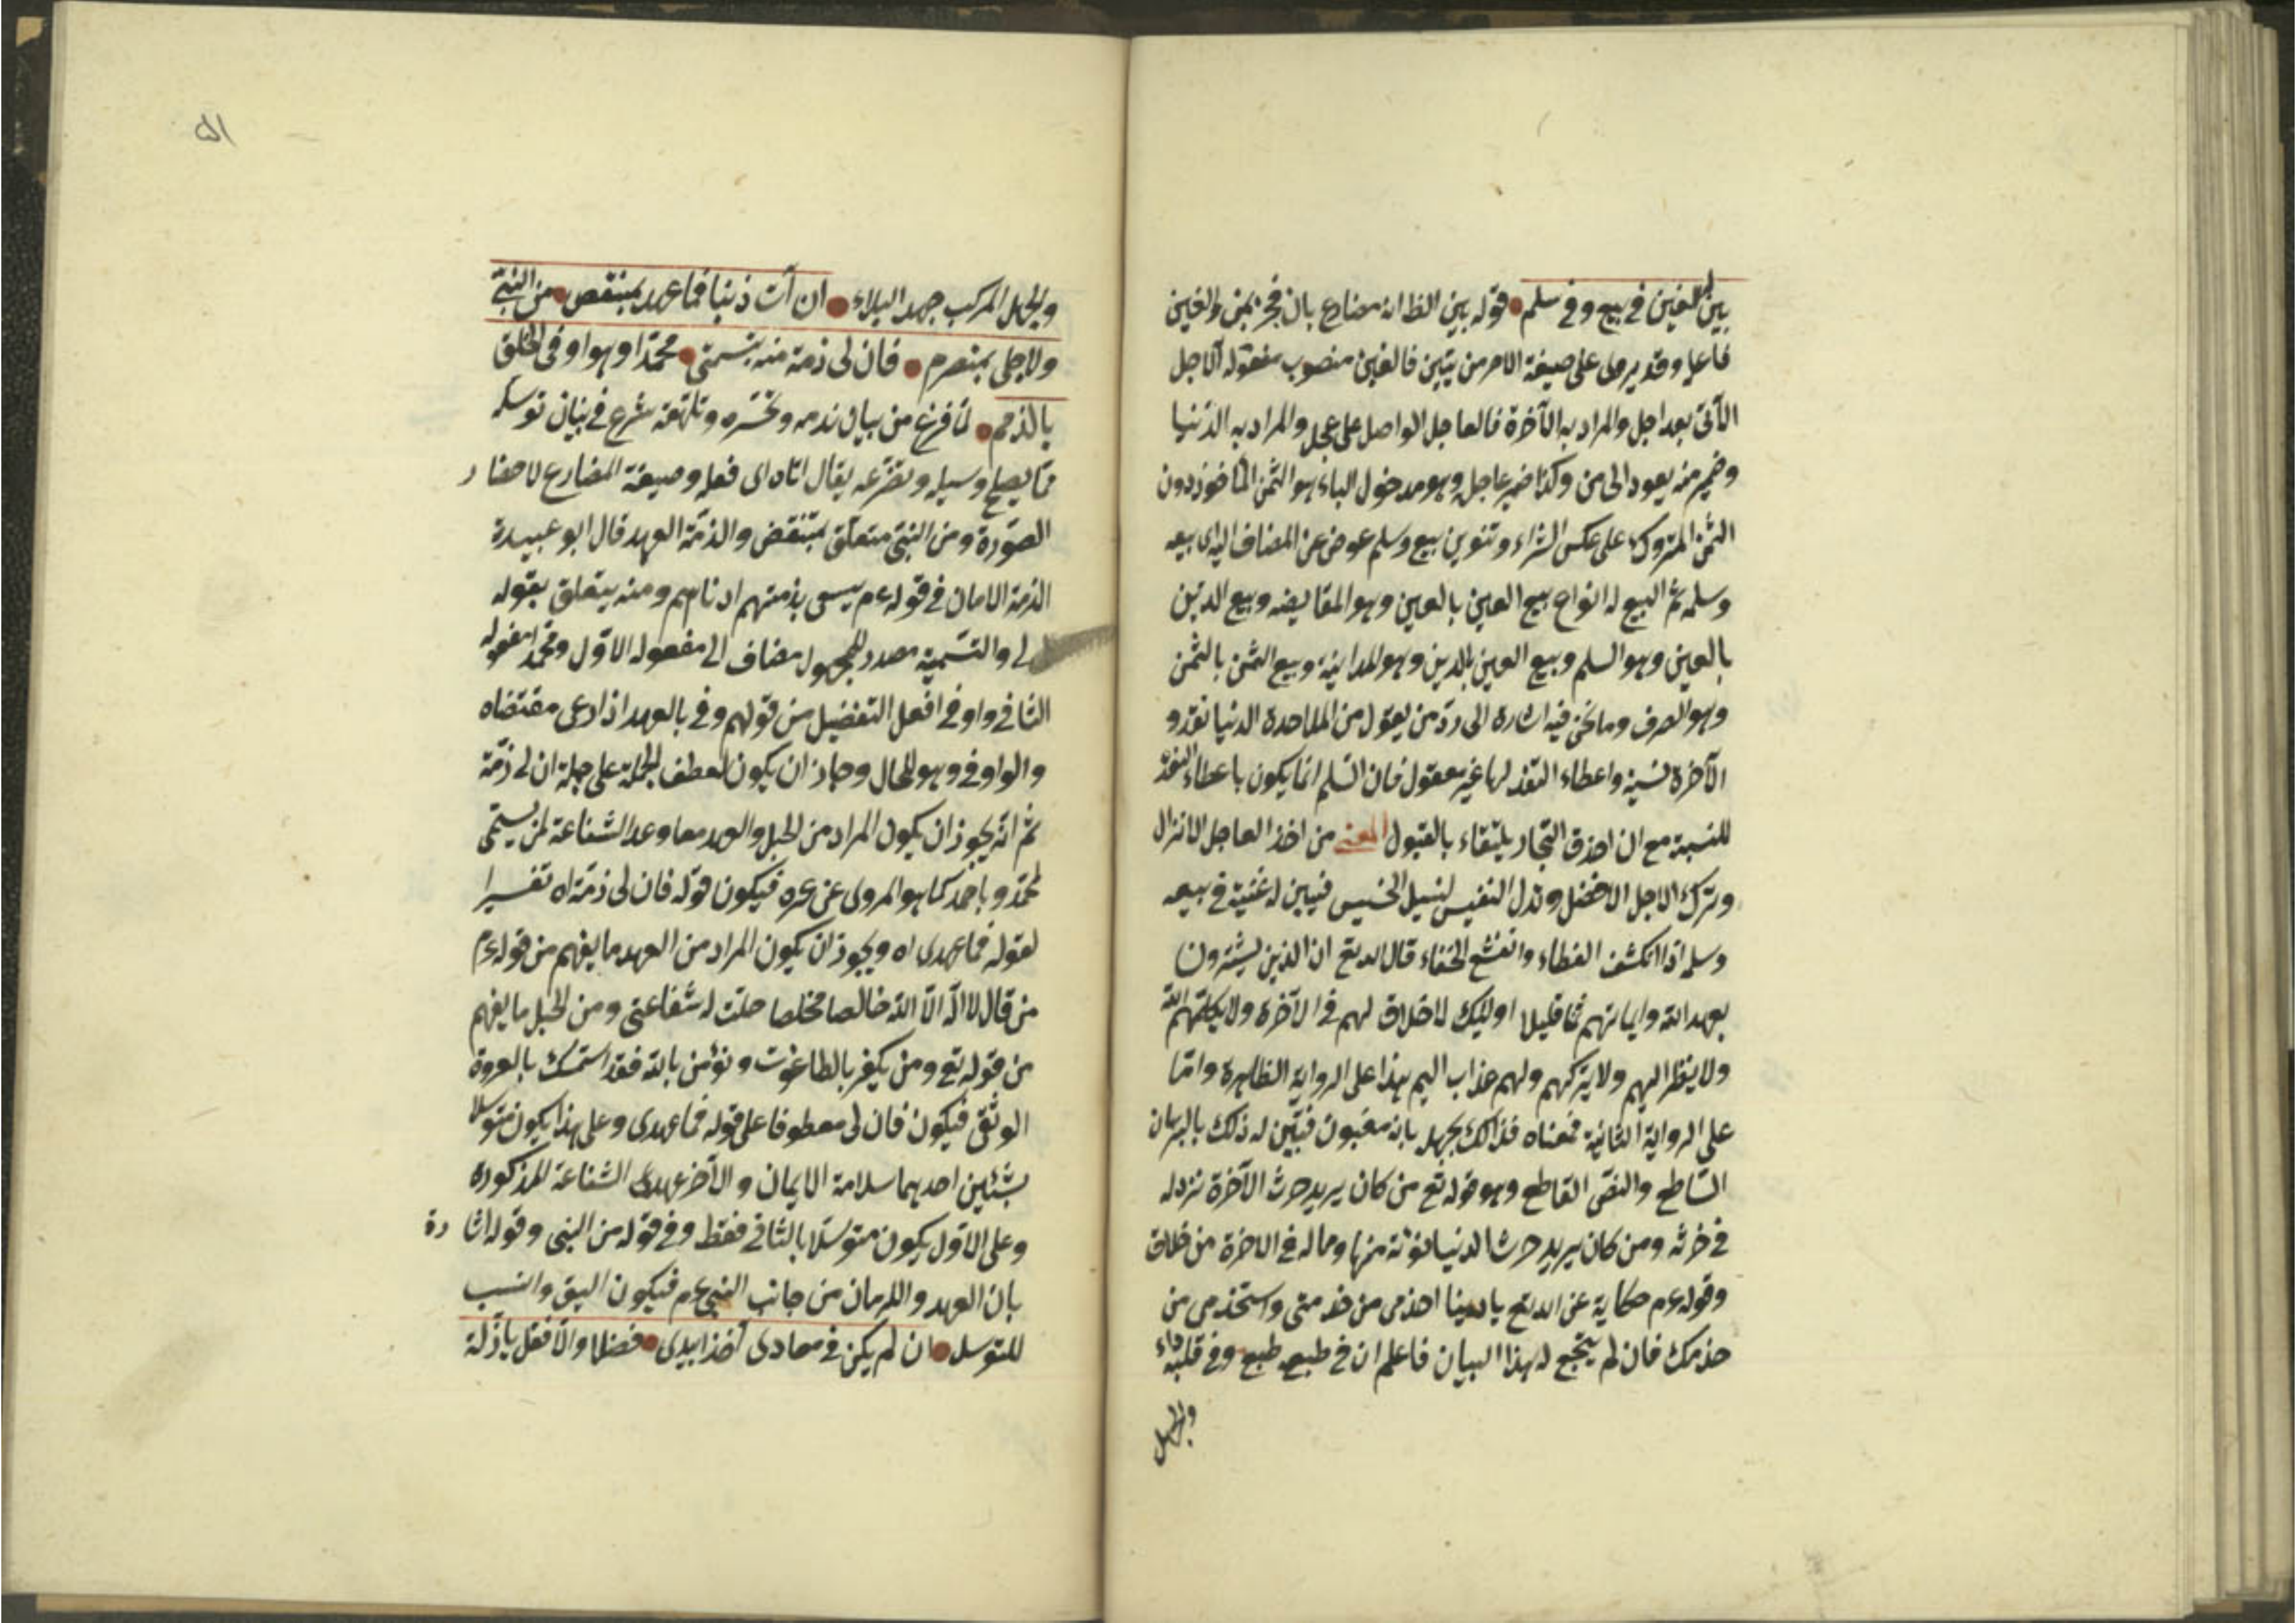 يبن له الغبن في بيع وفي سلم قوله يبن الظ انه مضارع بان فجز بمن والغبن
فاعله وقد يروى على صيغة الامر من يتبين فالغبن منصوب مفعوله الاجل
الآتي بعد اجل والمراد به الآخرة فالعاجل الواصل على عجل والمراد به الدنيا
وضمير منه يعود الى من وكذا ضمير عاجل وهو مدخول الباء هو الثمن المأخوذ دون
الثمن المتروك على عكس الشراء وتنوين بيع وسلم عوض عن المضاف اليه اى بيعه
وسلمه ثم البيع له انواع بيع العين بالعين وهو المقايضه وبيع الدين
بالعين وهو السلم وبيع العين بالدين وهو المداينة وبيع الثمن بالثمن
وهو الصرف وما نحن فيه اشارة الى ردّ من يقول من الملاحدة الدنيا نقد و
الآخرة نسية واعطاء النقد لها غير معقول فان السلم انما يكون باعطاء النقد
للنسية مع ان احذق التجار يلتقاء بالقبول المعنى من اخذ العاجل الانزال
وترك الاجل الافضل وبذل النفيس لنيل الخسيس فيبين له غبنه في بيعه
وسلمه اذا انكشف الغطاء وانقشع الخفاء قال الله تع ان الذين يشترون
بعهد الله وايمانهم ثمنا قليلا اوليك لاخلاق لهم في الآخرة ولا يكلمهم الله
ولا ينظر اليهم ولا يزكهم ولهم عذاب اليم هذا على الرواية الظاهرة وامّا
على الرواية الثانية فمعناه فذالك يجهل بانه مغبون فتبين له ذلك بالبرهان
السّاطع والنص القاطع وهو قوله تع من كان يريد حرث الآخرة نزد له
في حرثه ومن كان يريد حرث الدنيا نؤته منها وماله في الاخرة من خلاق
وقوله عم حكاية عن الله تع يا دنيا اخدمى من خدمنى واستخدمى من
خدمك فان لم ينجع له هذا البيان فاعلم ان في طبعه طبع وفي قلبه داء
والجهل
٥١
والجهل المركب جهد البلاء ان آت ذنبا فما عهدى بمنتقض من النبيّ
ولا حبلى بمنصرم فان لى ذمة منه بتسميتى محمّدا وهو اوفى الخلق
بالذمم لمّا فرغ من بيان ندمه وتحسّره وتلهّفه شرع في بيان توسله
بما يصلح وسيله وتضرّعه يقال اتاه اى فعله وصيغة المضارع لاحضار
الصورة ومن النبيّ متعلق بمنتقض والذمّة العهد قال ابو عبيدة
الذمة الامان في قوله عم يسعى بذمتهم ادناهم ومنه يتعلق بقوله
لى والتسمية مصدر للمجهول مضاف الى مفعوله الاوّل ومحمّدا مفعوله
الثاني واوفى افعل التفضيل من قولهم وفى بالعهد اذا ادى مقتضاه
والواو في وهو للحال وجاز ان يكون لعطف الجملة على جملة ان لى ذمّة
ثم انه يجوز ان يكون المراد من الحبل والعهد معا وعد الشفاعة لمن يسمّى
بمحمّد وباحمد كما هو المروى عن غيره فيكون قوله فان لى ذمّة اه تفسيرا
لقوله فما عهدى اه ويجوز ان يكون المراد من العهد ما يفهم من قوله عم
من قال لا اله الّا الله خالصا مخلصا حلّت له شفاعتى ومن الحبل ما يفهم
من قوله تع ومن يكفر بالطاغوت ويؤمن بالله فقد استمسك بالعروة
الوثقى فيكون فان لى معطوفا على قوله فما عهدى وعلى هذا يكون متوسلا
بشئين احديهما سلامة الايمان والآخر عهدى الشفاعة المذكورة
وعلى الاول يكون متوسّلا بالثاني فقط وفي قوله من النبى وقوله اشارة
بان العهد والامان من جانب النبي عم فيكون اليق وانسب
للتوسل ان لم يكن في معادى آخذا بيدى فضلا والّا فقل يا زلّة